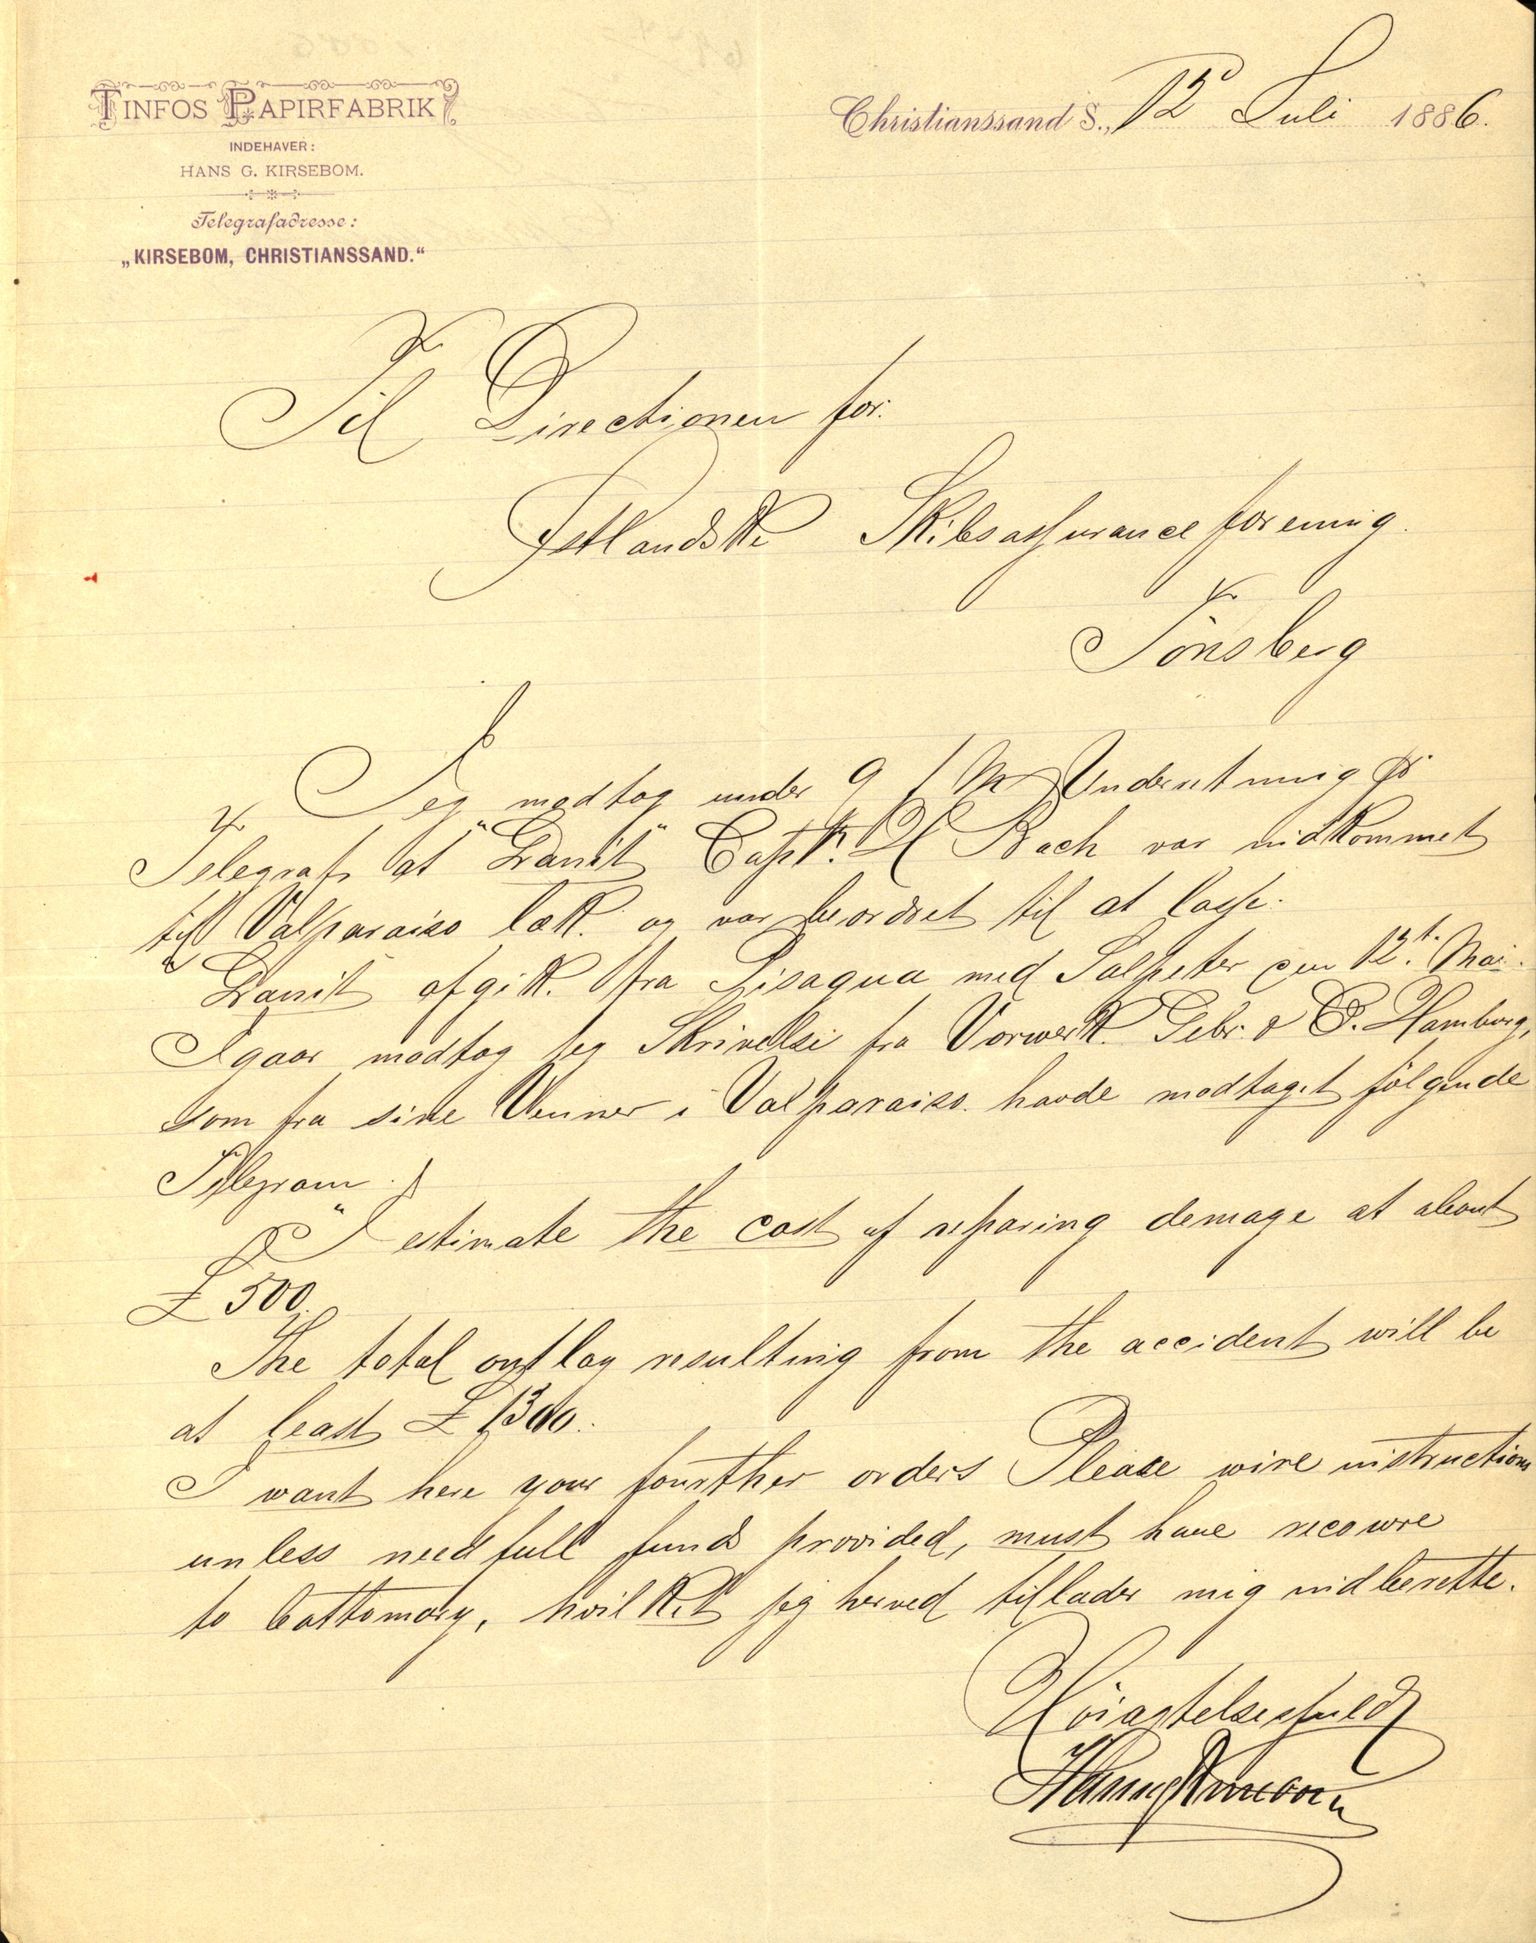 TINFOS PAPIRFABRIK
INDEHAVER:
HANS G. KIRSEBOM.
Telegrafadresse:
„KIRSEBOM, CHRISTIANSSAND.“
Christianssand S., 12 Juli 1886.
Til Directionen for.
Østlandske Skibsassuranceforening.
Tönsberg
Jeg modtog under 9 / Underretning pr
Telegraf at "Granit" Capt. H Bach var indkommet
til Valparaiso læk. og var beordret til at losse.
"Granit" afgik fra Pisaqua med Salpeter den 12t. Mai.
Igaar modtog jeg Skrivelse fra Vorwerk Gebr. & C. Hamburg,
som fra sine Venner i Valparaiso havde modtaget fölgende
Telegram.
"I estimate the cost of reparing demage at about
£ 500.
The total outlay resulting from the accident will be
at least £ 1300.
I want here your fourther orders Please wire instructions
unless needfull funds provided, must have recourse
to bottomory, hvilket jeg herved tillader mig indberette.
Höiagtelsesfuldt